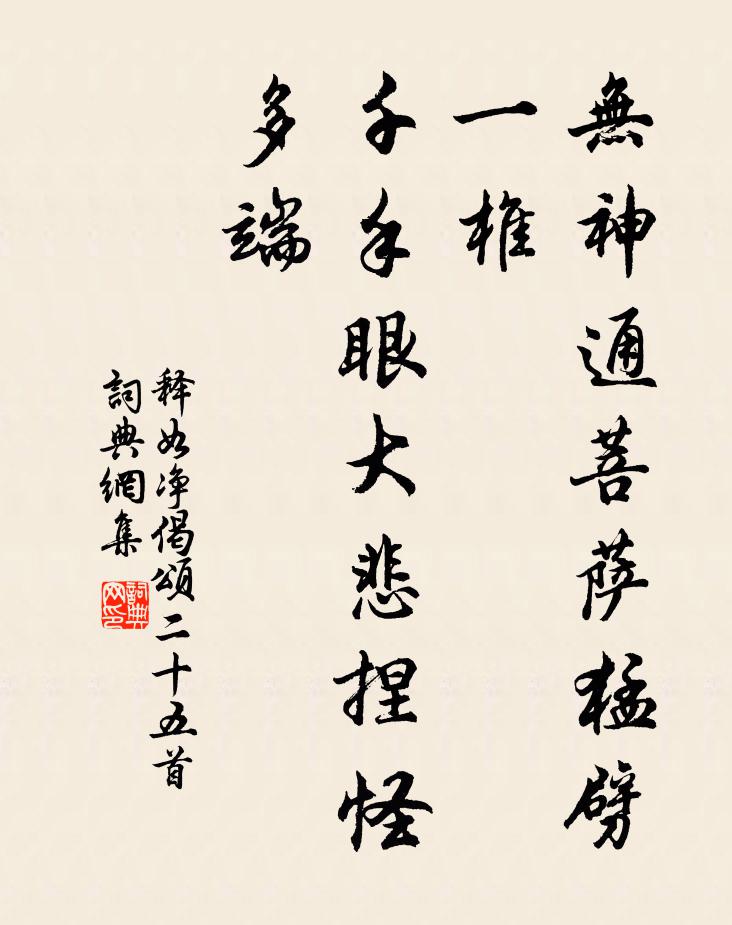 無神通菩萨猛劈
一椎
千手眼大悲捏怪
多端
释如净偈頌二十五首
詞典網集
詞典网印